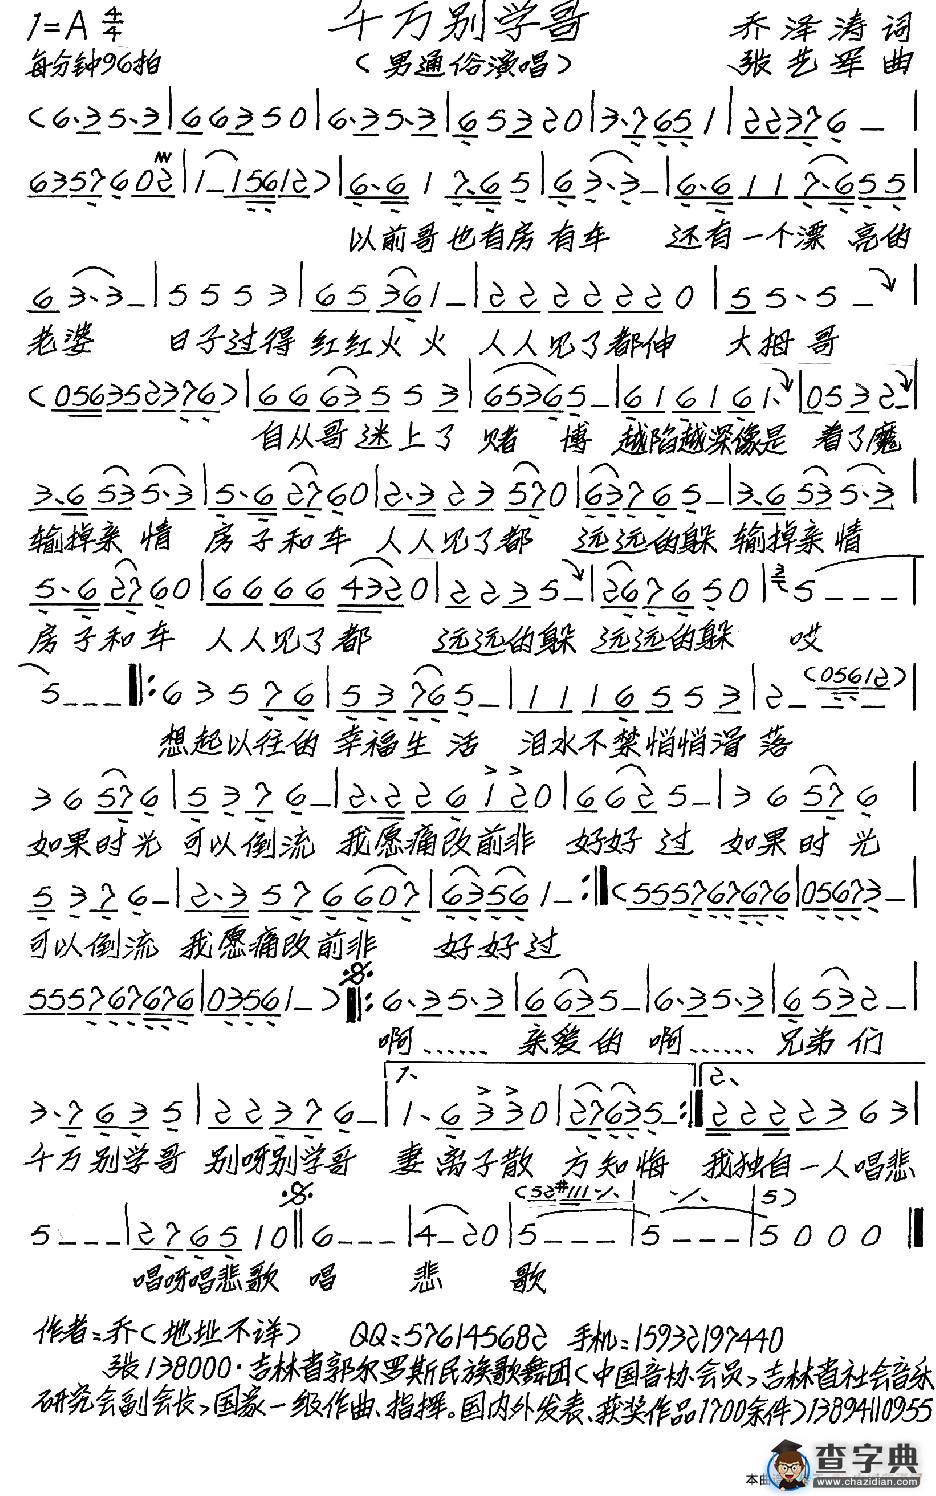 1=A 4/4 千万别学哥 乔泽涛 词
每分钟96拍 (男通俗演唱) 张艺军 曲
(6·3 5·3|66350|6·3 5·3|65320|3·7651|22376 —|
6357602|1—15612)|6·617·65|63·3—|6·6117·655|
以前哥也有房有车 还有一个漂亮的
63·3—|5553|65361—|22222220|55·5—|
老婆 日子过得红红火火 人人见了都伸 大拇哥
(056352376)|6663553|65365—|616161·|0532—|
自从哥迷上了赌博 越陷越深像是 着了魔
3·6535·3|5·62760|2·323570|63765—|3·6535·3|
输掉亲情 房子和车 人人见了都 远远的躲 输掉亲情
5·62760|66664320|2235——|267650|5———|
房子和车 人人见了都 远远的躲 远远的躲 哎
5———‖:63576|53765—|1116553|2——(05612)|
想起以往的幸福生活 泪水不禁悄悄滑落
36576|5376—|2·226120|6625—|36576|
如果时光 可以倒流 我愿痛改前非 好好过 如果时光
5376—|2·3576607|63561—:‖(555767676|05673—|
可以倒流 我愿痛改前非 好好过
555767676|03561—)‖:6·35·3|6635—|6·35·3|6532—|
啊…… 亲爱的 啊…… 兄弟们
3·7635|22376—|1、1·6330|27635—:‖2、2222363|
千万别学哥 别呀别学哥 妻离子散 方知悔 我独自一人唱悲
5———|276510‖6———|4—20|5———|5———|5000‖
唱呀唱悲歌 唱 悲 歌
作者:乔(地址不详) QQ:576145682 手机:15932197440
张138000·吉林省郭尔罗斯民族歌舞团(中国音协会员,吉林省社会音乐
研究会副会长,国家一级作曲、指挥。国内外发表、获奖作品1700余件)13894110955
查字典
www.chazidian.com
本曲